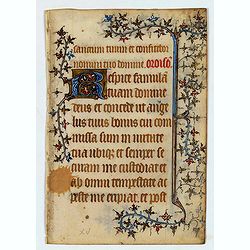 sanctum tuum et confiteor
nomini tuo domine. Oroiso
Respice famulā
tuam domine
deus et concede ut ange
lus tuus bonus cui com
missa sum in uirtute
tua ubiqȝ et semper se
curam me custodiat et
ab omni tempestate ac
peste me eripiat. et post